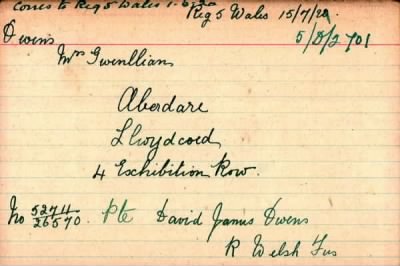 Corres to Reg 5 Wales 1.6.20
Reg 5 Wales 15/7/20
Owens 5/D/2701
Mrs Gwenllian
Aberdare
Llwydcoed
4 Exhibition Row.
No 52711 / 26570. Pte David James Owens
R Welsh Fus